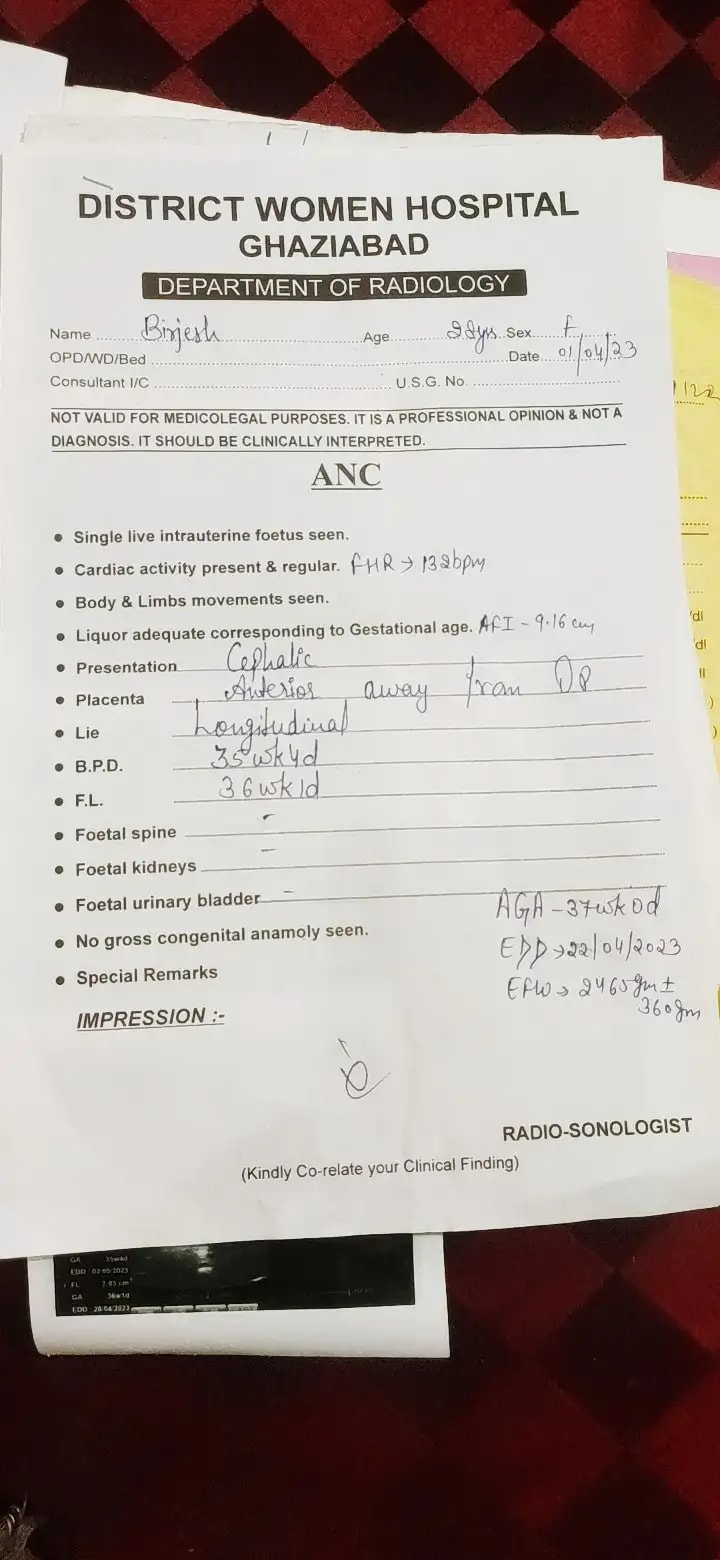 DISTRICT WOMEN HOSPITAL
GHAZIABAD
DEPARTMENT OF RADIOLOGY
Name Birjesh Age 22yrs Sex F
OPD/WD/Bed Date 01/04/23
Consultant I/C U.S.G. No.
NOT VALID FOR MEDICOLEGAL PURPOSES. IT IS A PROFESSIONAL OPINION & NOT A
DIAGNOSIS. IT SHOULD BE CLINICALLY INTERPRETED.
ANC
• Single live intrauterine foetus seen.
• Cardiac activity present & regular. FHR → 132bpm
• Body & Limbs movements seen.
• Liquor adequate corresponding to Gestational age. AFI - 9.16 cm
• Presentation Cephalic
• Placenta Anterior away from OP
• Lie Longitudinal
• B.P.D. 35wk4d
• F.L. 36wk1d
• Foetal spine -
• Foetal kidneys -
• Foetal urinary bladder -
AGA - 37wk0d
• No gross congenital anamoly seen.
EDD → 22/04/2023
• Special Remarks
EFW → 2465gm ±
360gm
IMPRESSION :-
RADIO-SONOLOGIST
(Kindly Co-relate your Clinical Finding)
GA 35w4d
EDD 02-05-2023
FL 7.03 cm
GA 36w1d
EDD 28/04/2023